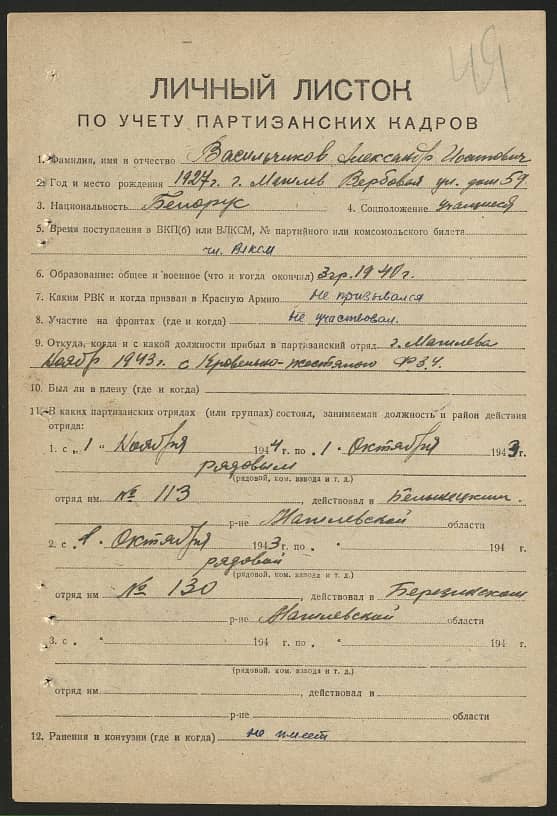 49
ЛИЧНЫЙ ЛИСТОК
ПО УЧЕТУ ПАРТИЗАНСКИХ КАДРОВ
1. Фамилия, имя и отчество Васильчиков Александр
2. Год и место рождения 1927 г. г. Могилев Вербовая ул. дом 59
3. Национальность Белорус 4. Соцположение учащиеся
5. Время поступления в ВКП(б) или ВЛКСМ, № партийного или комсомольского билета
чл. ВЛКСМ
6. Образование: общее и военное (что и когда окончил) 3 гр. 1940 г.
7. Каким РВК и когда призван в Красную Армию не призывался
8. Участие на фронтах (где и когда) не участвовал.
9. Откуда, когда и с какой должности прибыл в партизанский отряд г. Могилева
Ноябр 1943 г. с Кровельно-жестяного ФЗУ.
10. Был ли в плену (где и когда)
11. В каких партизанских отрядах (или группах) состоял, занимаемая должность и район действия
отряда:
1. с „1 " Ноября 1944 г. по „1 " Октября 1943 г.
рядовым
(рядовой, ком. взвода и т. д.)
отряд им. № 113, действовал в Белыничским
р-не Могилевской области
2. с „1 " Октября 1943 г. по „ " 194 г.
рядовой
(рядовой, ком. взвода и т. д.)
отряд им № 130, действовал в Березинском
р-не Могилевской области
3. с „ " 194 г. по „ " 194 г.
(рядовой, ком. взвода и т. д.)
отряд им, действовал в
р-не области
12. Ранения и контузии (где и когда) не имеет